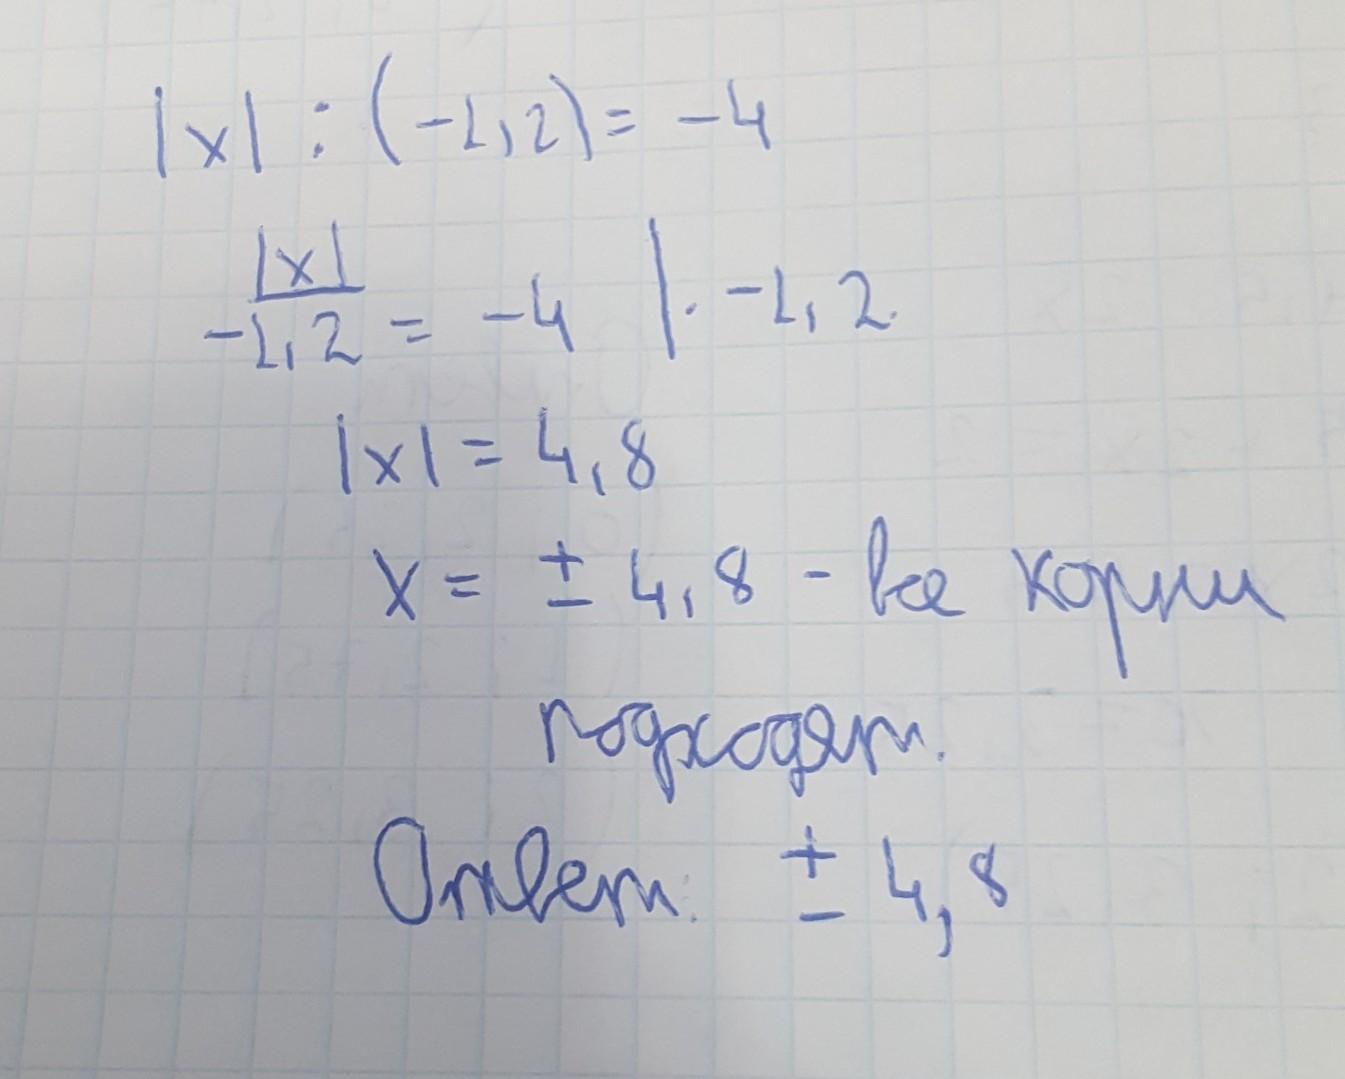 |x| : (-1,2) = -4
|x|
-1,2 = -4 | · -1,2
|x| = 4,8
x = ± 4,8 - все корни
подходят.
Ответ: ± 4,8